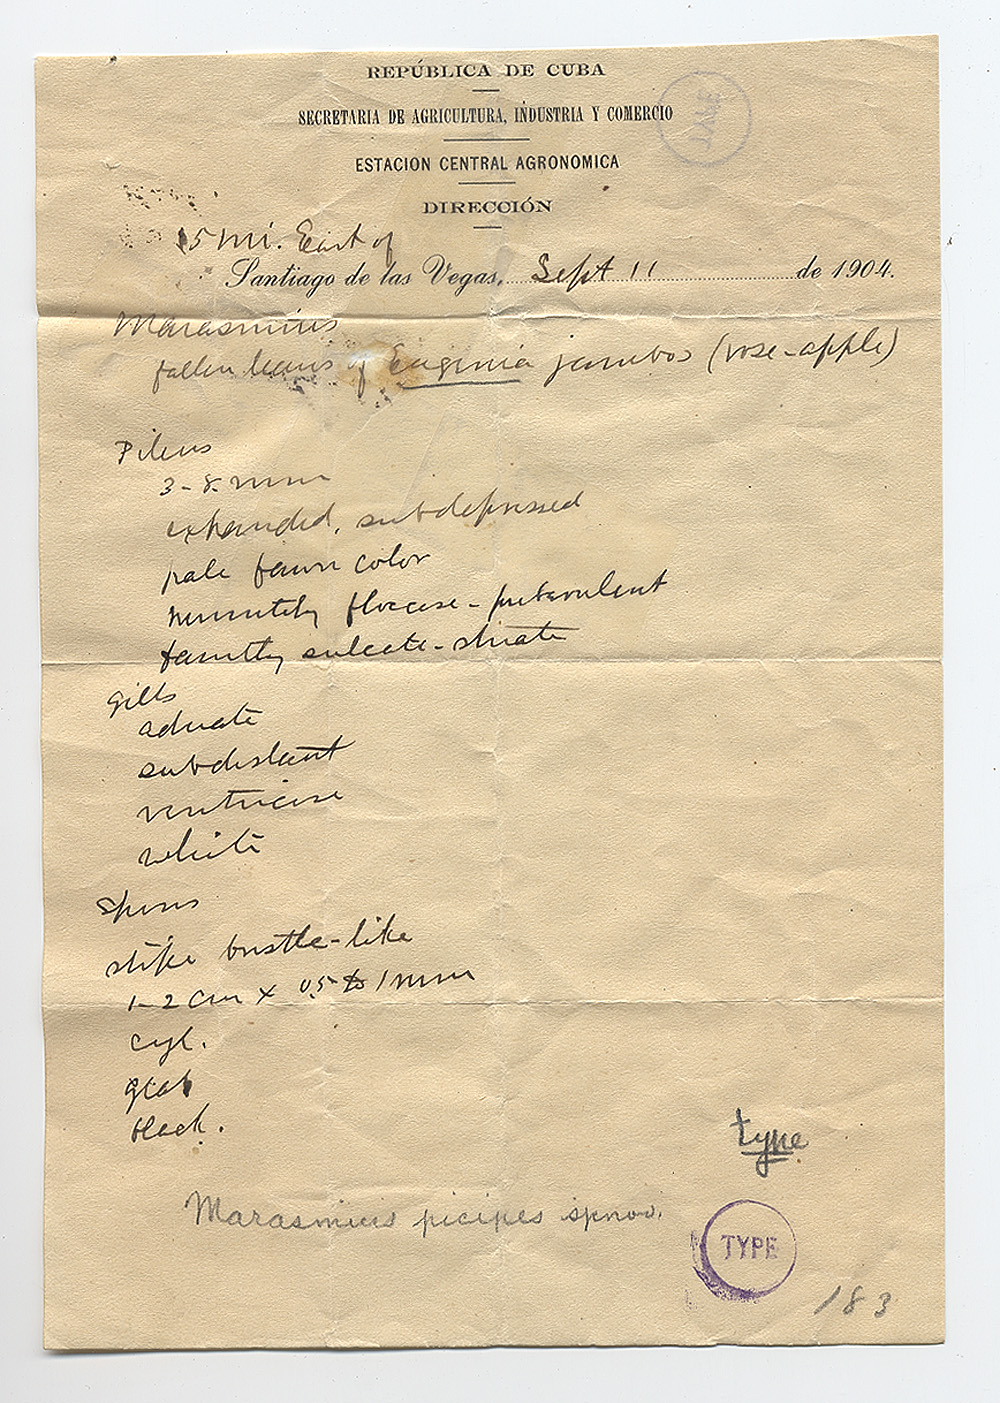 REPÚBLICA DE CUBA
SECRETARIA DE AGRICULTURA, INDUSTRIA Y COMERCIO
ESTACION CENTRAL AGRONOMICA
DIRECCIÓN
15 mi. East of
Santiago de las Vegas, Sept 11 de 1904.
Marasmius
fallen leaves of Eugenia jambos (rose-apple)
Pileus
3-8 mm
expanded, subdepressed
pale fawn color
minutely floccose-pulverulent
faintly sulcate-striate
gills
adnate
subdistant
ventricose
white
spores
stipe bristle-like
1-2 cm x 0.5 to 1 mm
cyl.
glab
black.
type
Marasmius picipes sp nov.
TYPE
183